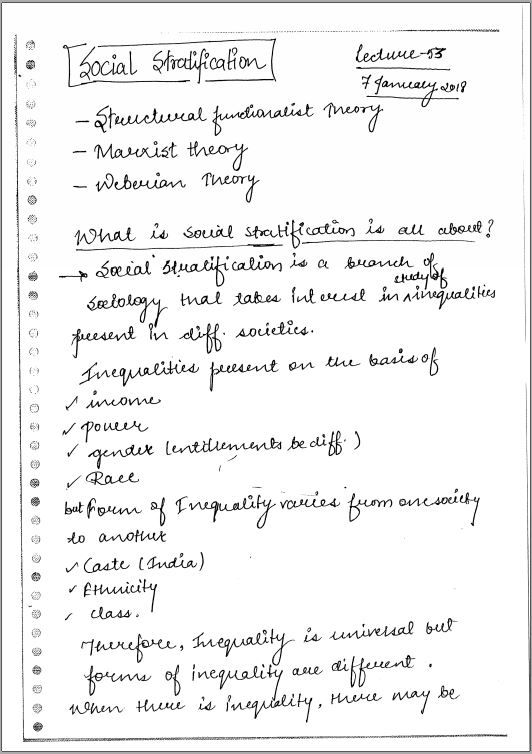 Social Stratification
Lecture-53
7 January 2018
- Structural functionalist Theory
- Marxist theory
- Weberian Theory
What is social stratification is all about?
→ Social Stratification is a branch of
sociology that takes interest in ^ study of inequalities
present in diff. societies.
Inequalities present on the basis of
✓ income
✓ power
✓ gender (entitlements be diff.)
✓ Race
but form of Inequality varies from one society
to another
✓ Caste (India)
✓ Ethnicity
✓ class.
Therefore, Inequality is universal but
forms of inequality are different.
When there is inequality, there may be